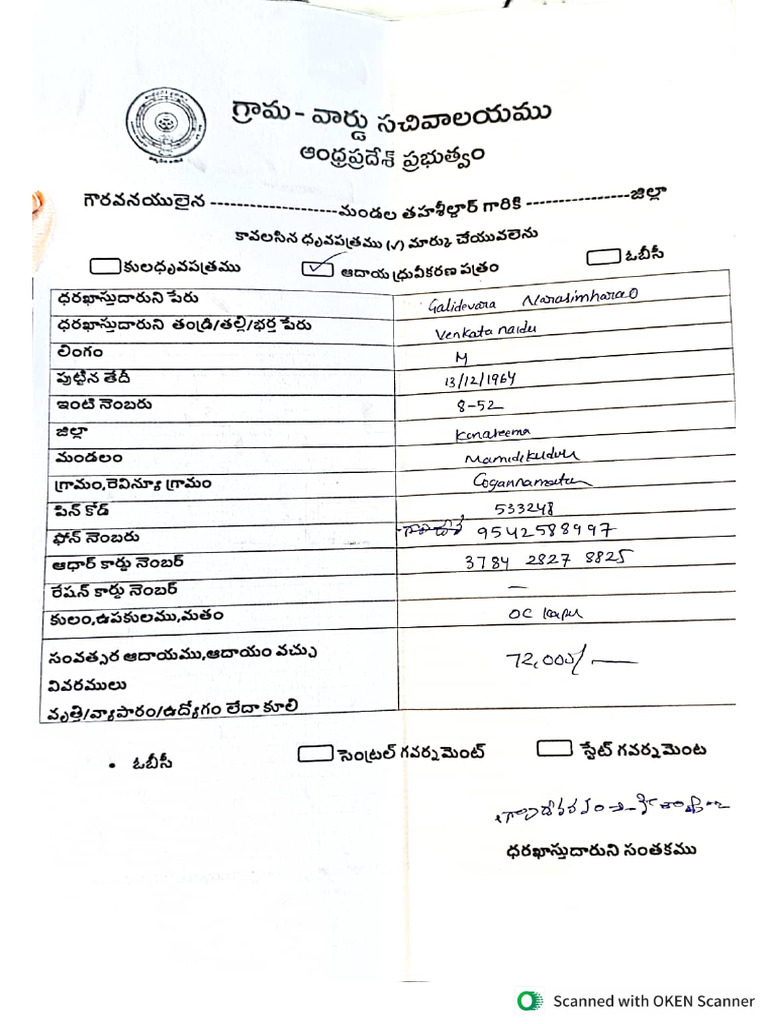 గ్రామ - వార్డు సచివాలయము
ఆంధ్రప్రదేశ్ ప్రభుత్వం
గౌరవనయులైన -------------------మండల తహశీల్దార్ గారికి ----------------జిల్లా
కావలసిన ధృవపత్రము (✓) మార్కు చేయువలెను
కులధృవపత్రము ✓ ఆదాయ ధ్రువీకరణ పత్రం ఓబీసీ
ధరఖాస్తుదారుని పేరు Galidevara Narasimharao
ధరఖాస్తుదారుని తండ్రి/తల్లి/భర్త పేరు Venkata naidu
లింగం M
పుట్టిన తేదీ 13/12/1964
ఇంటి నెంబరు 8-52
జిల్లా Konaseema
మండలం Mamidikuduru
గ్రామం,రెవిన్యూ గ్రామం
పిన్ కోడ్ 533248
ఫోన్ నెంబరు 9542588997
ఆధార్ కార్డు నెంబర్ 3784 2827 8825
రేషన్ కార్డు నెంబర్ —
కులం,ఉపకులము,మతం OC kapu
సంవత్సర ఆదాయము,ఆదాయం వచ్చు 72,000/—
వివరములు
వృత్తి/వ్యాపారం/ఉద్యోగం లేదా కూలి
• ఓబీసీ సెంట్రల్ గవర్నమెంట్ స్టేట్ గవర్నమెంట
ధరఖాస్తుదారుని సంతకము
Scanned with OKEN Scanner